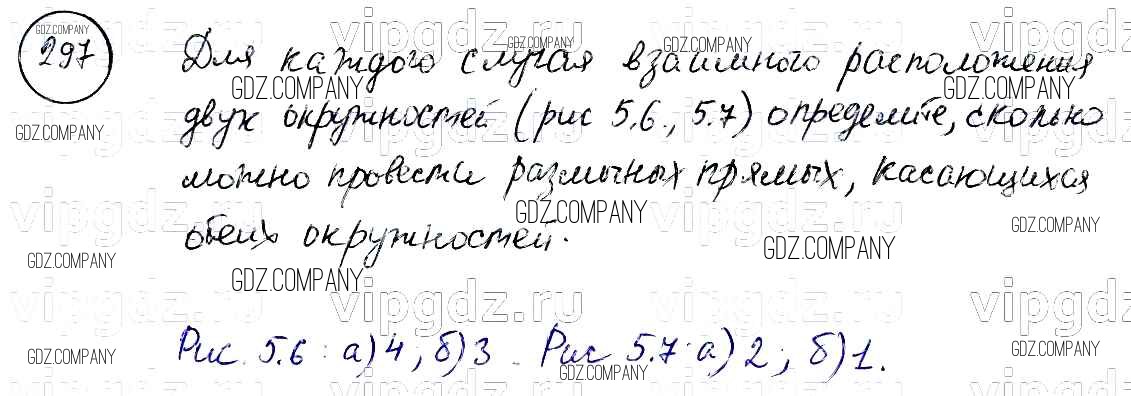 297 Для каждого случая взаимного расположения
двух окружностей (рис 5.6., 5.7) определите, сколько
можно провести различных прямых, касающихся
обеих окружностей.
Рис. 5.6: а) 4; б) 3. Рис 5.7: а) 2; б) 1.
GDZ.COMPANY
vipgdz.ru